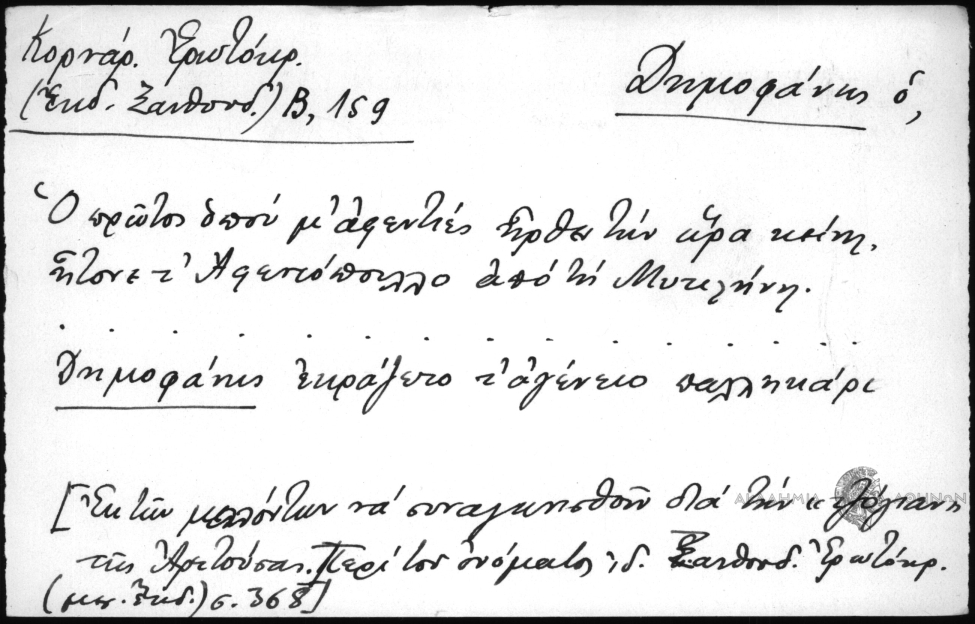 Κορνάρ. Ἐρωτόκρ.
(Ἔκδ. Ξανθουδ.) Β, 159
Δημοφάνης ὁ,
Ὁ πρῶτος ὁποὺ μ' ἀφεντιές ἦρθεν τὴν ὥρα κείνη,
ἦτονε τ' Ἀφεντόπουλλο ἀπό τή Μυτιλήνη.
. . . . . . . . . . . . . .
Δημοφάνης ἐκράζετο τ' ἀγένειο παλληκάρι
[Ἐκ τῶν μελλόντων νά συναγωνισθοῦν διά τήν
τῆς Ἀρετούσας. Περί τοῦ ὀνόματος ἰδ. Ξανθουδ. Ἐρωτόκρ.
(μεγ. Ἔκδ.) σ. 368]
ΑΚΑΔΗΜΙΑ ΑΘΗΝΩΝ